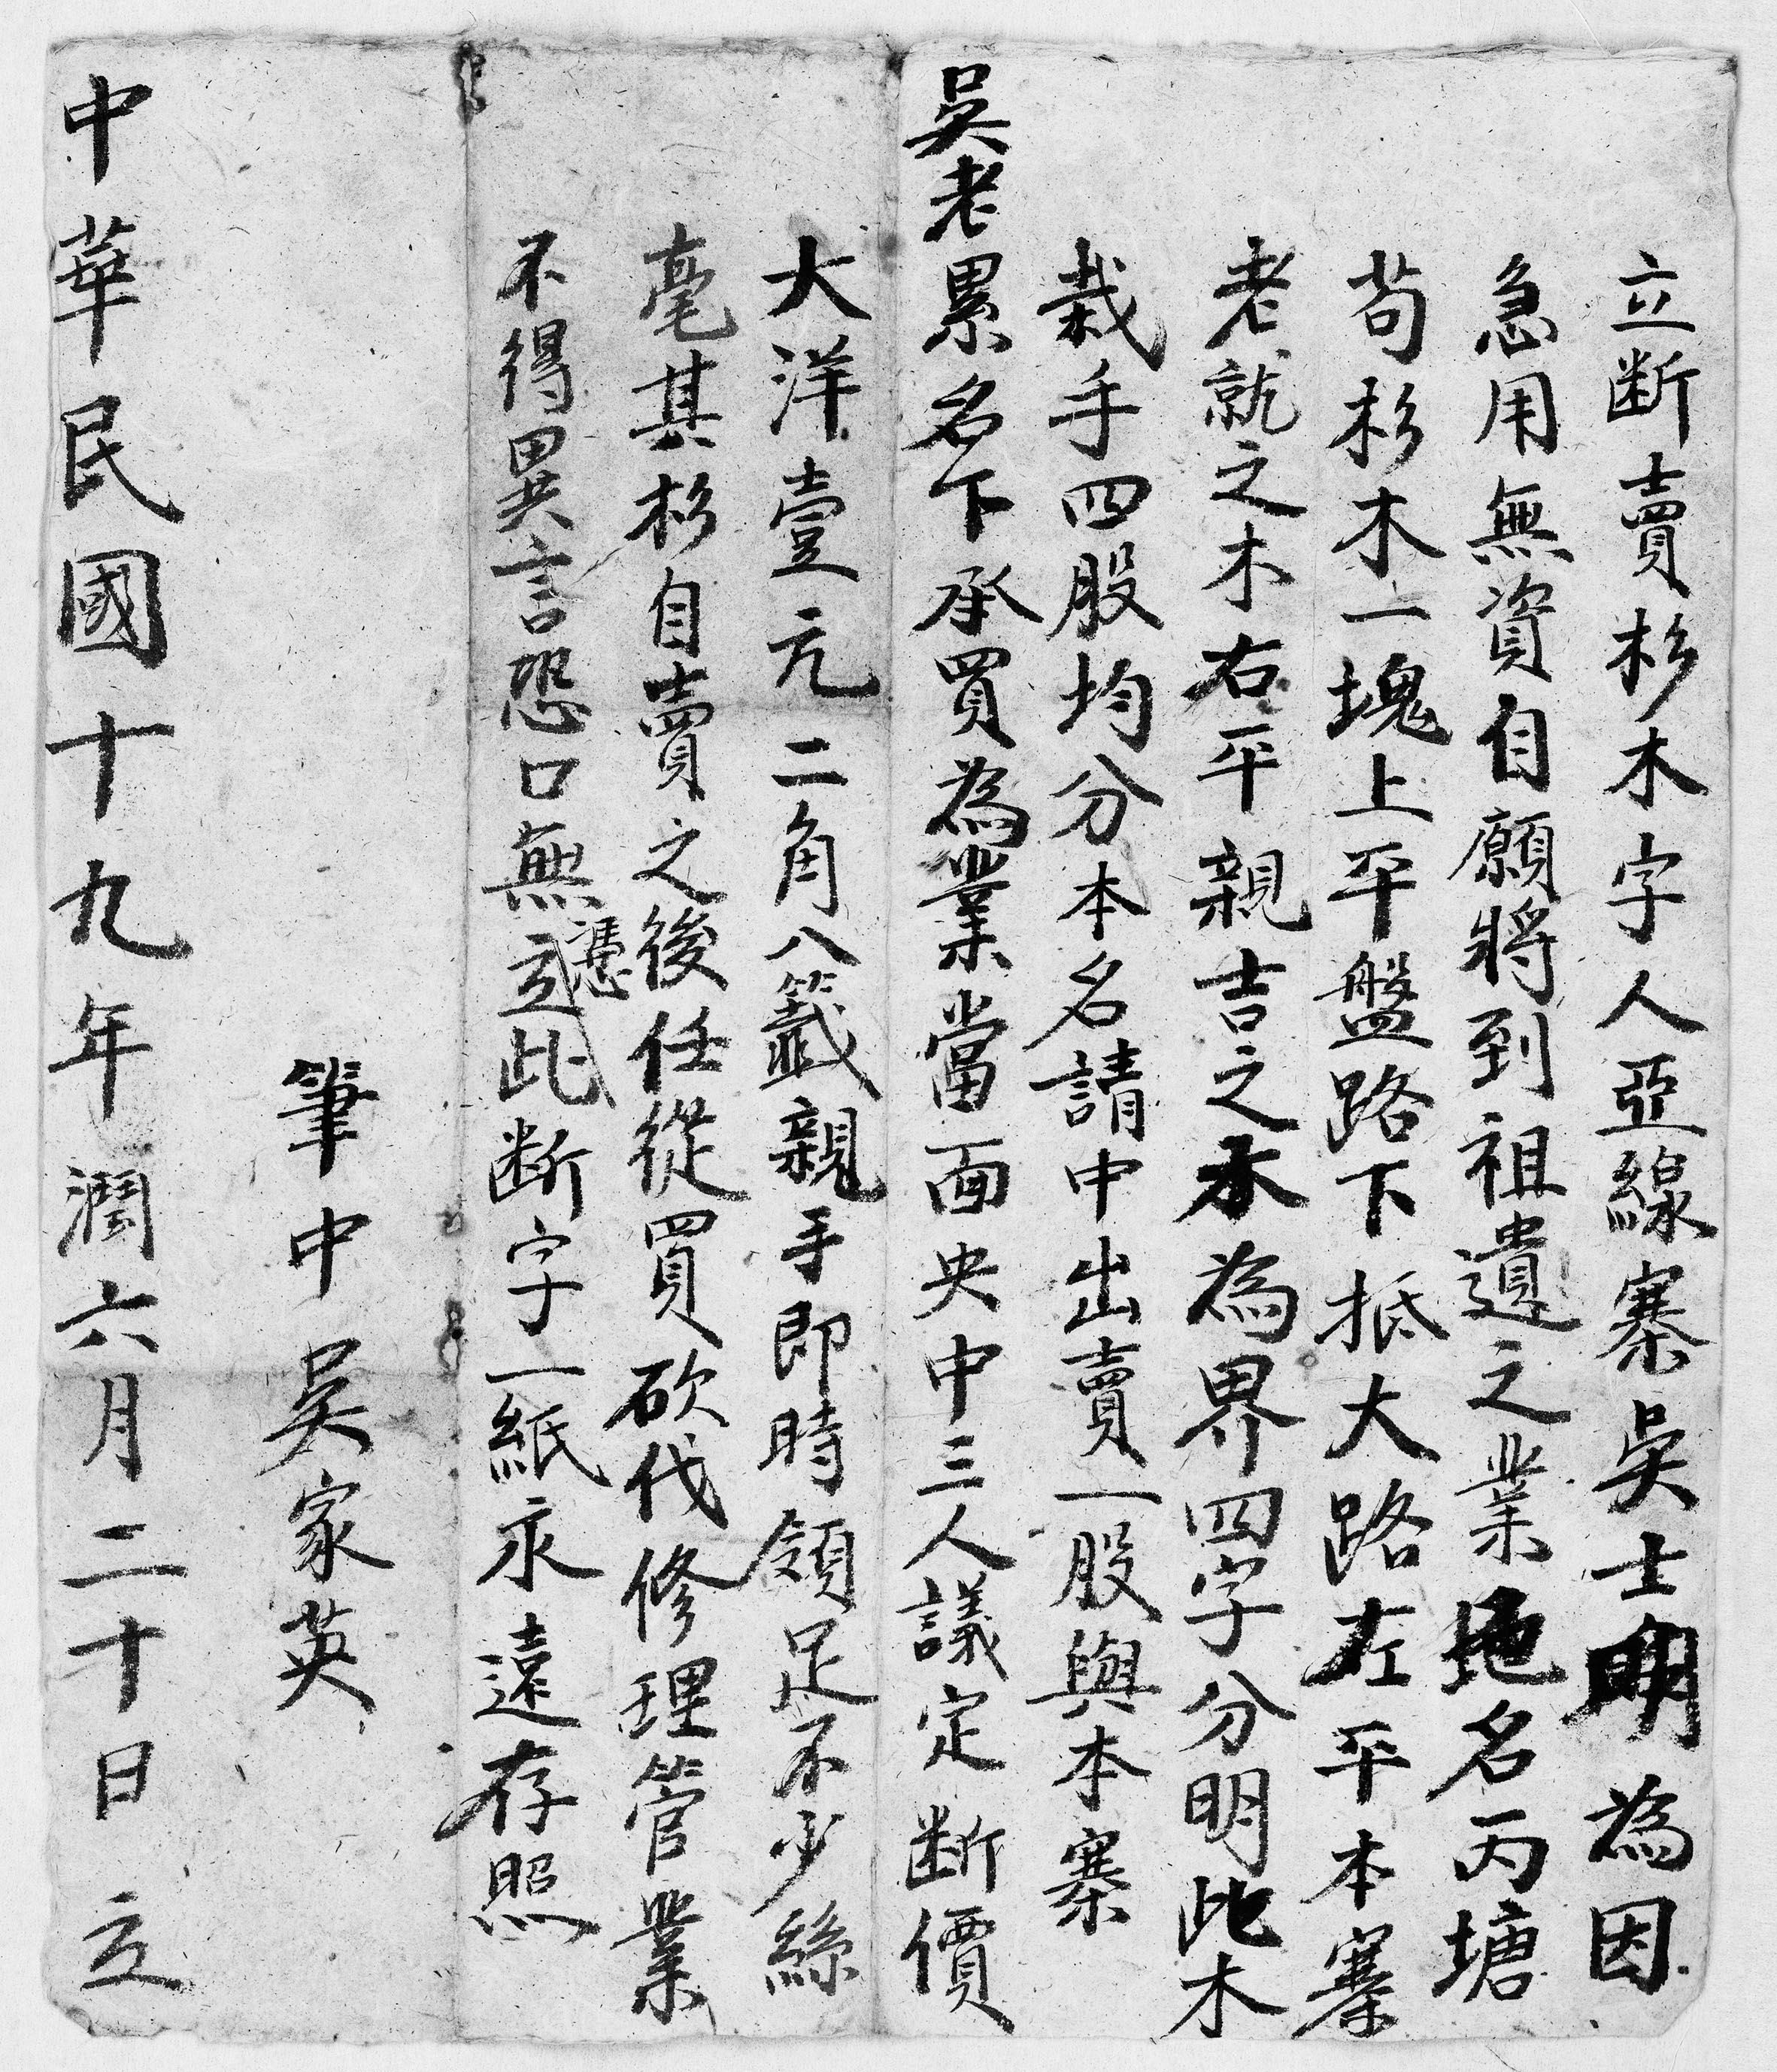 立断賣杉木字人亞線寨吳士明為因
急用無資自願將到祖遺之業地名丙塘
苟杉木一塊上平盤路下抵大路左平本寨
老就之木右平親吉之木為界四字分明此木
栽手四股均分本名請中出賣一股與本寨
吳老累名下承買為業當面央中三人議定断價
大洋壹元二角八籤親手即時領足不少絲
毫其杉自賣之後任從買砍伐修理管業
不得異言恐口無憑立此断字一紙永遠存照
筆中吳家英
中華民國十九年潤六月二十日立